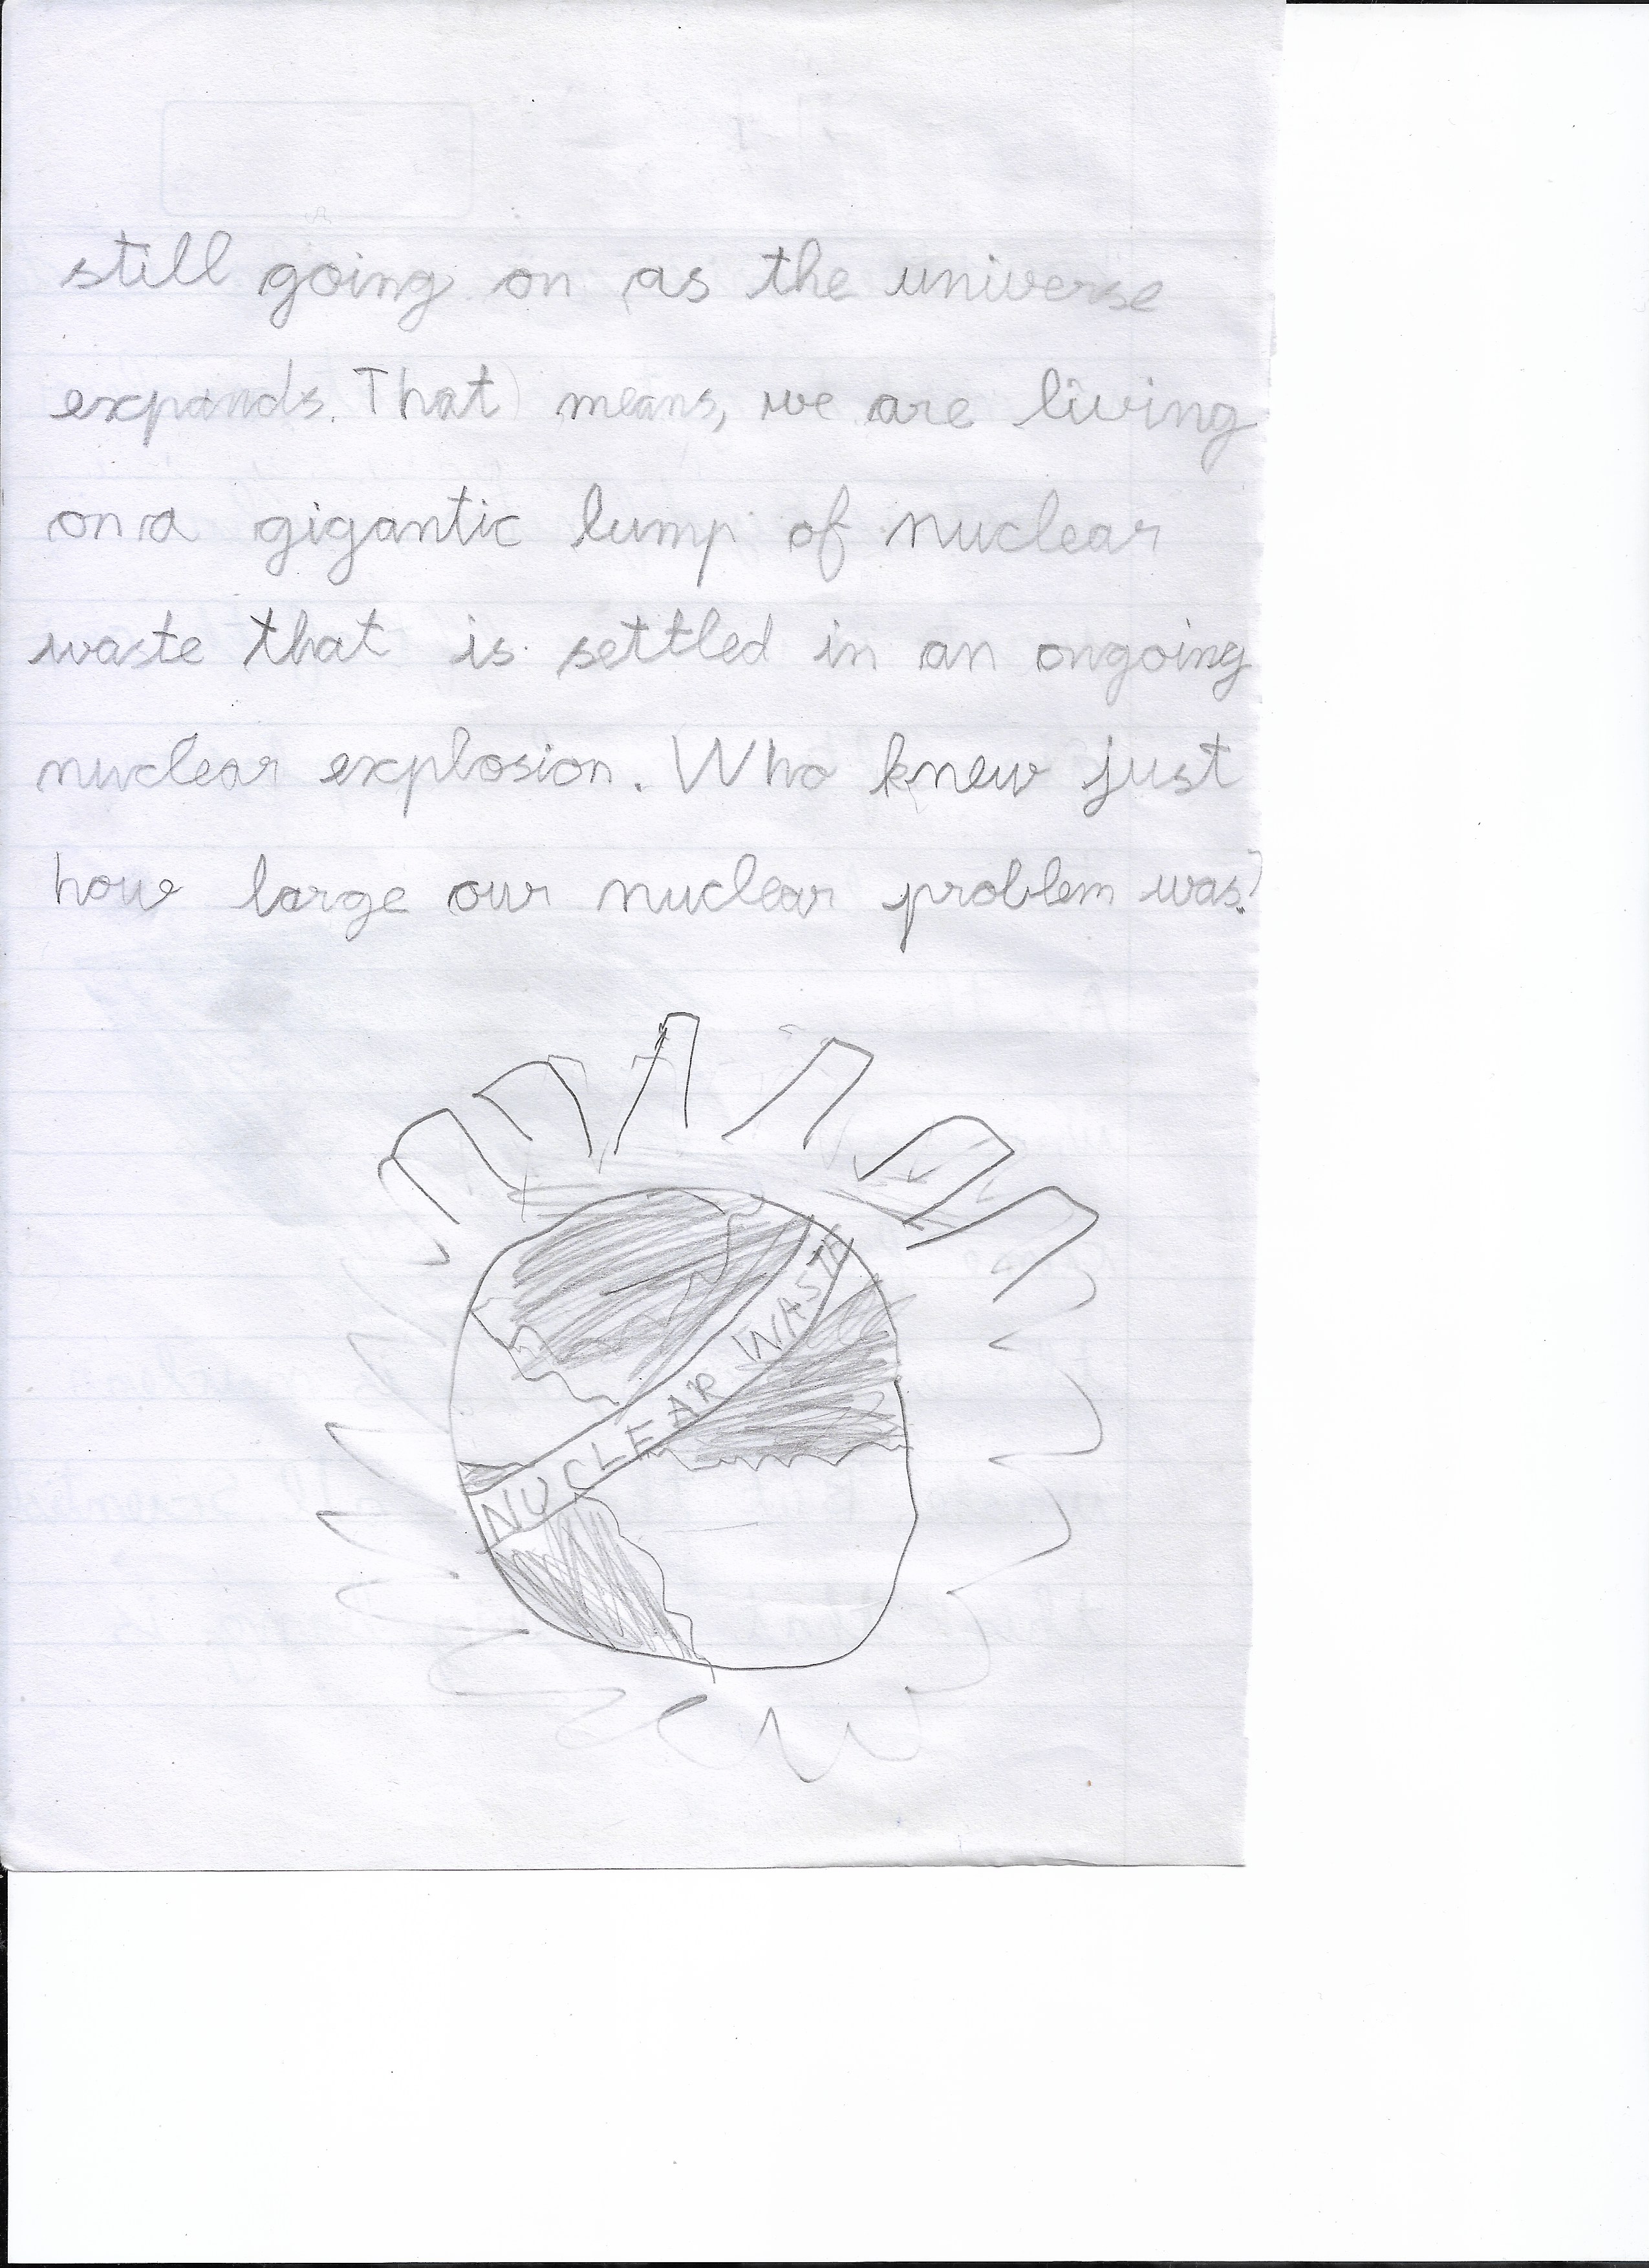 still going on as the universe
expands. That means, we are living
on a gigantic lump of nuclear
waste that is settled in an ongoing
nuclear explosion. Who knew just
how large our nuclear problem was?
NUCLEAR WASTE